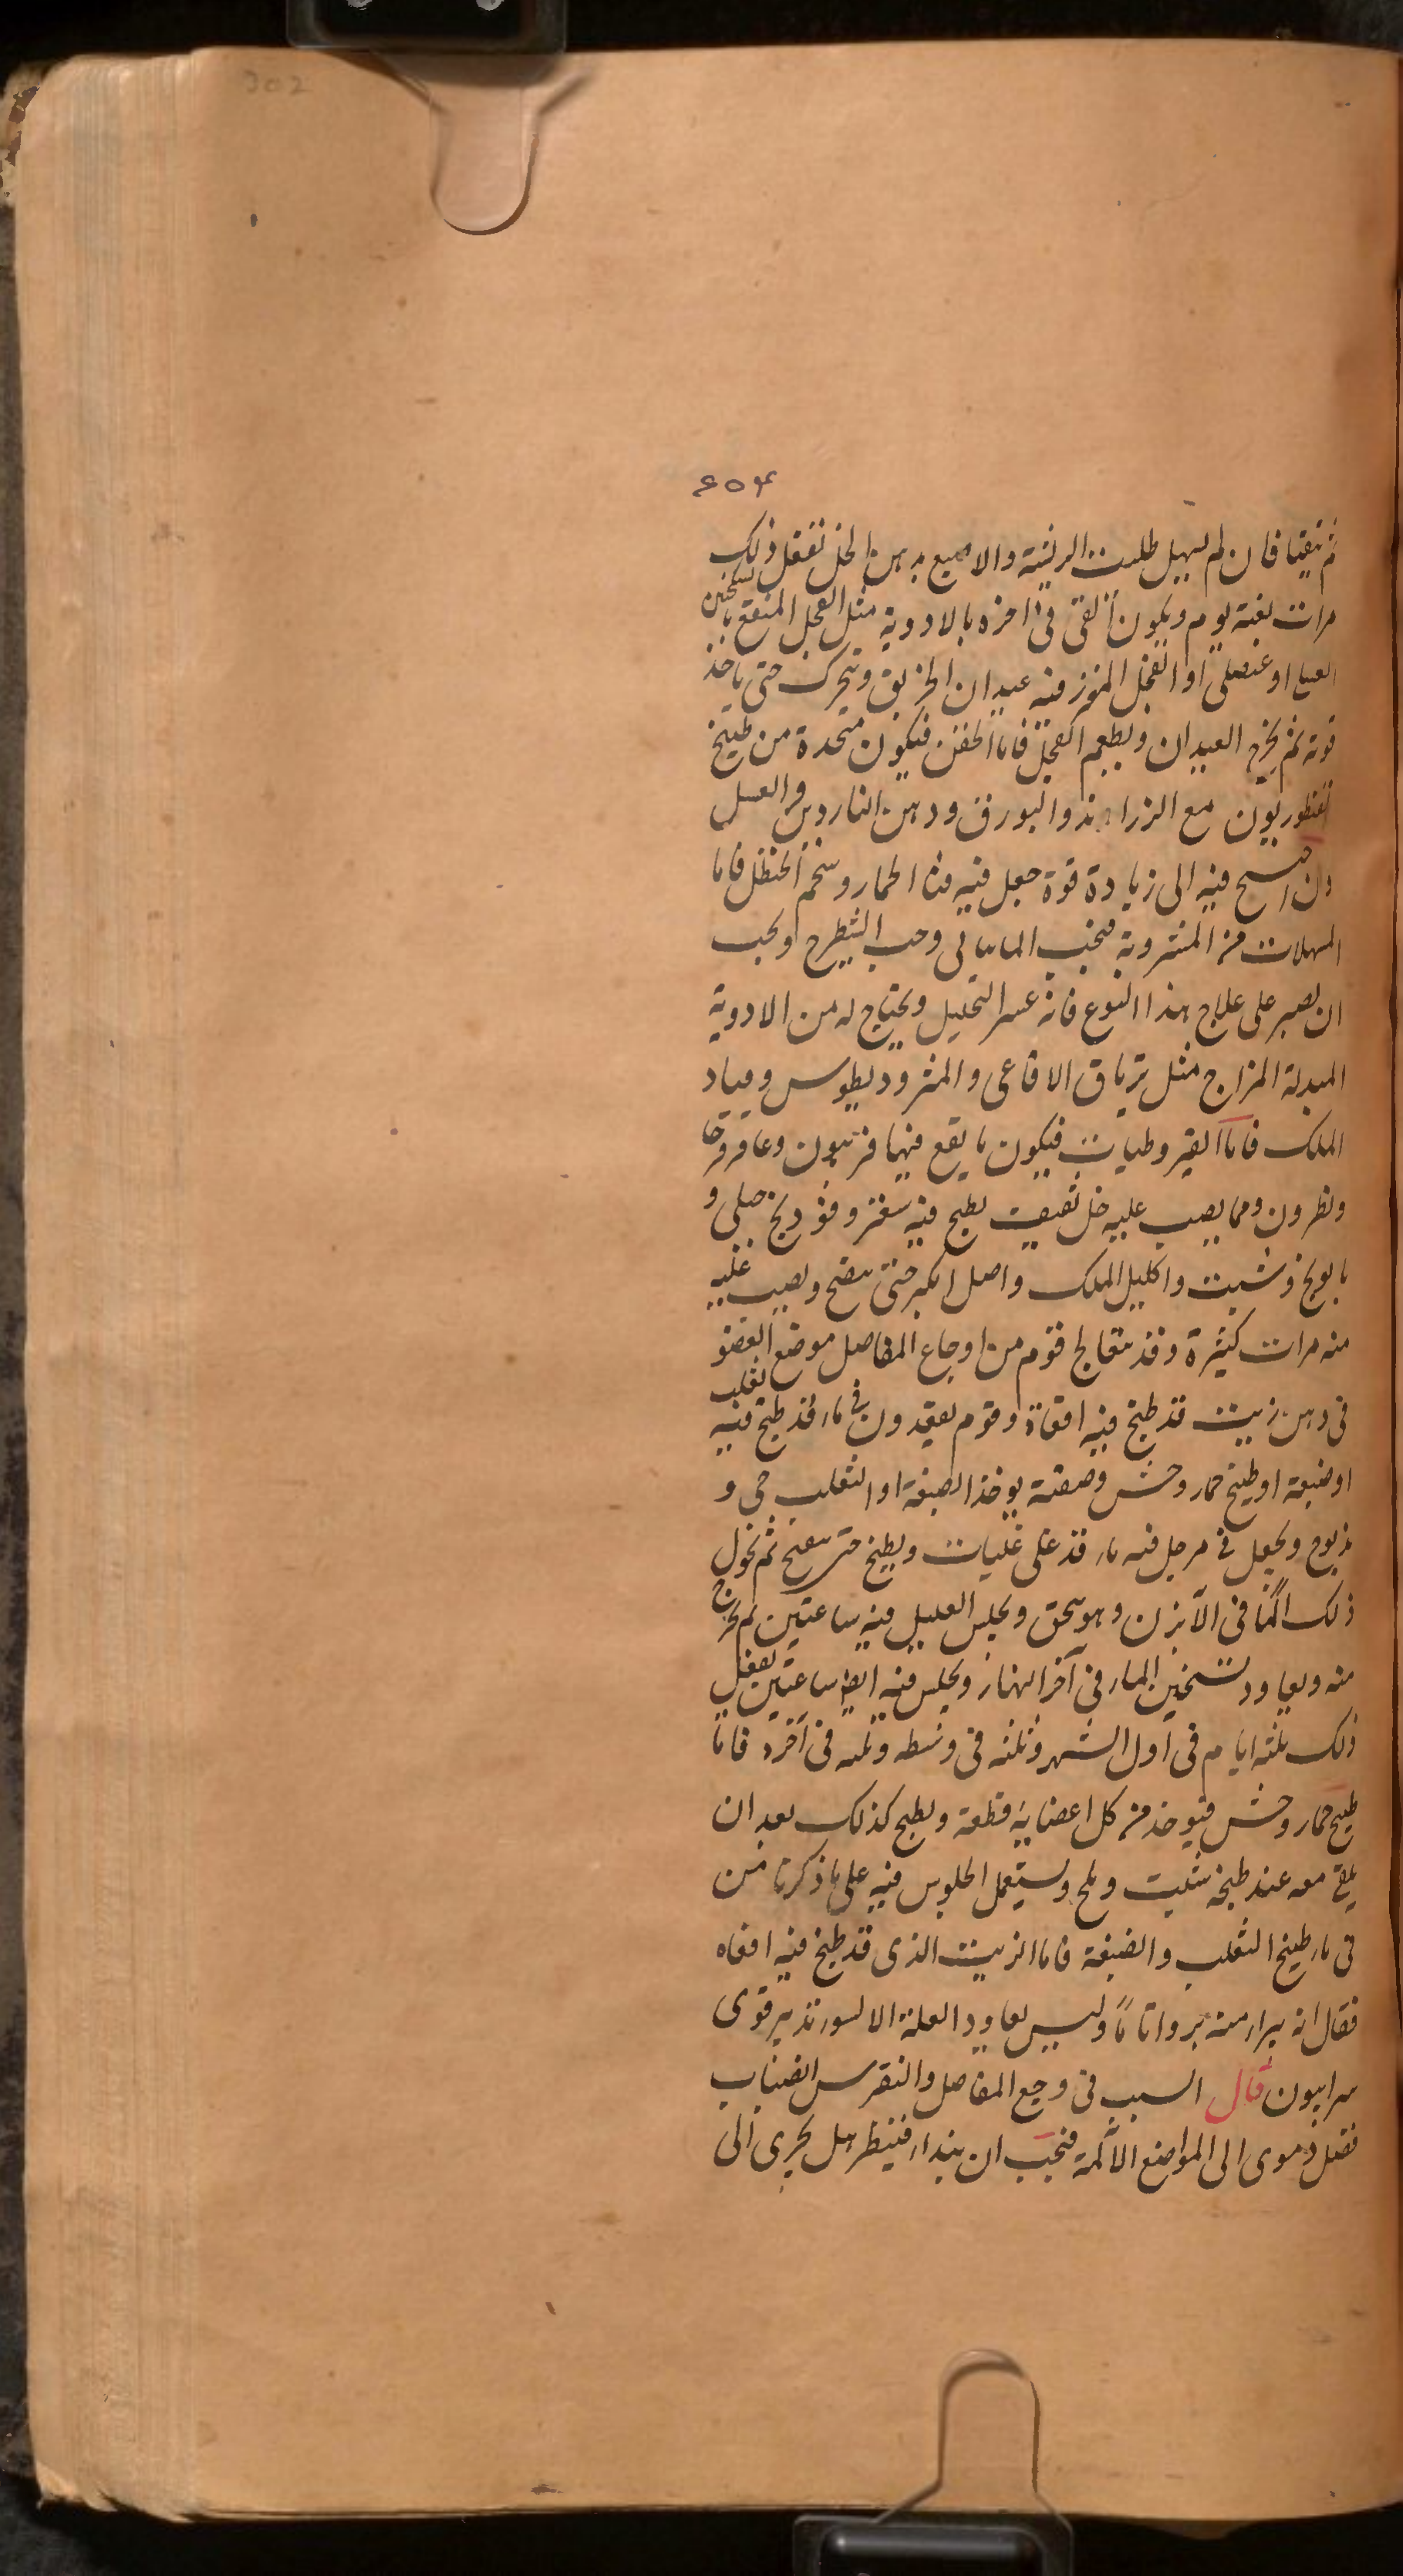 302
٤٥٣
ثم يتقيا فان لم يسهل طليت الريشة والاصبع بدهن الخل تفعل ذلك
مرات بغتة يوم ويكون القى فى اخره بالادوية مثل الفجل المنقع بالسكنجبين
العسلى او عنصلى او الفجل المغرز فيه عيدان الخربق ويترك حتى ياخذ
قوته ثم يخرج العيدان ويطعم الفجل فاما الحقن فيكون متخذة من طبيخ
القنطوريون مع الزراوند والبورق ودهن الناردين والعسل
وان احتيج فيه الى زيادة قوة جعل فيه قثا الحمار وشحم الحنظل فاما
المسهلات من المشروبة فحب الماهانى وحب الشيطرج ويجب
ان يصبر على علاج هذا النوع فانه عسر التحليل ويحتاج له من الادوية
المبدلة المزاج مثل ترياق الافاعى والمثروديطوس وميلاد
الملك فاما القيروطيات فيكون ما يقع فيها فربيون وعاقرقرحا
ونطرون ومما يصب عليه خل ثقيف يطبخ فيه سعتر وفودنج جبلى و
بابونج وشبت واكليل الملك واصل الكبر حتى ينضج ويصب عليه
منه مرات كثيرة وقد يتعالج قوم من اوجاع المفاصل موضع العضو
فى دهن زيت قد طبخ فيه افعاة وقوم يقعدون فى ماء قد طبخ فيه ثعلب
او ضبعة او طبيخ حمار وحش وصفته يوخذ الضبعة او الثعلب حى و
مذبوح ويجعل فى مرجل فيه ماء قد غلى غليات ويطبخ حتى ينضج ثم يحول
ذلك الما فى الآبزن وهو يسخن ويجلس العليل فيه ساعتين ثم يخرج
منه ويعاود تسخين الماء فى آخر النهار ويجلس فيه ايضا ساعتين يفعل
ذلك ثلثة ايام فى اول الشهر وثلثة فى وسطه وثلثة فى آخره فاما
طبيخ حمار وحش فيوخذ من كل اعضايه قطعة ويطبخ كذلك بعد ان
يلقى معه عند طبخه شبت وملح ويستعمل الجلوس فيه على ما ذكرنا من
فى ماء طبيخ الثعلب والضبعة فاما الزيت الذى قد طبخ فيه افعاه
فقال انه يبراء منه بروا تاما وليس يعاود العلة الا لسوء تدبير قوى
سرابيون قال السبب فى وجع المفاصل والنقرس انصباب
فضل دموى الى المواضع الآلمة فيجب ان يبداء فينظر هل يجرى الى